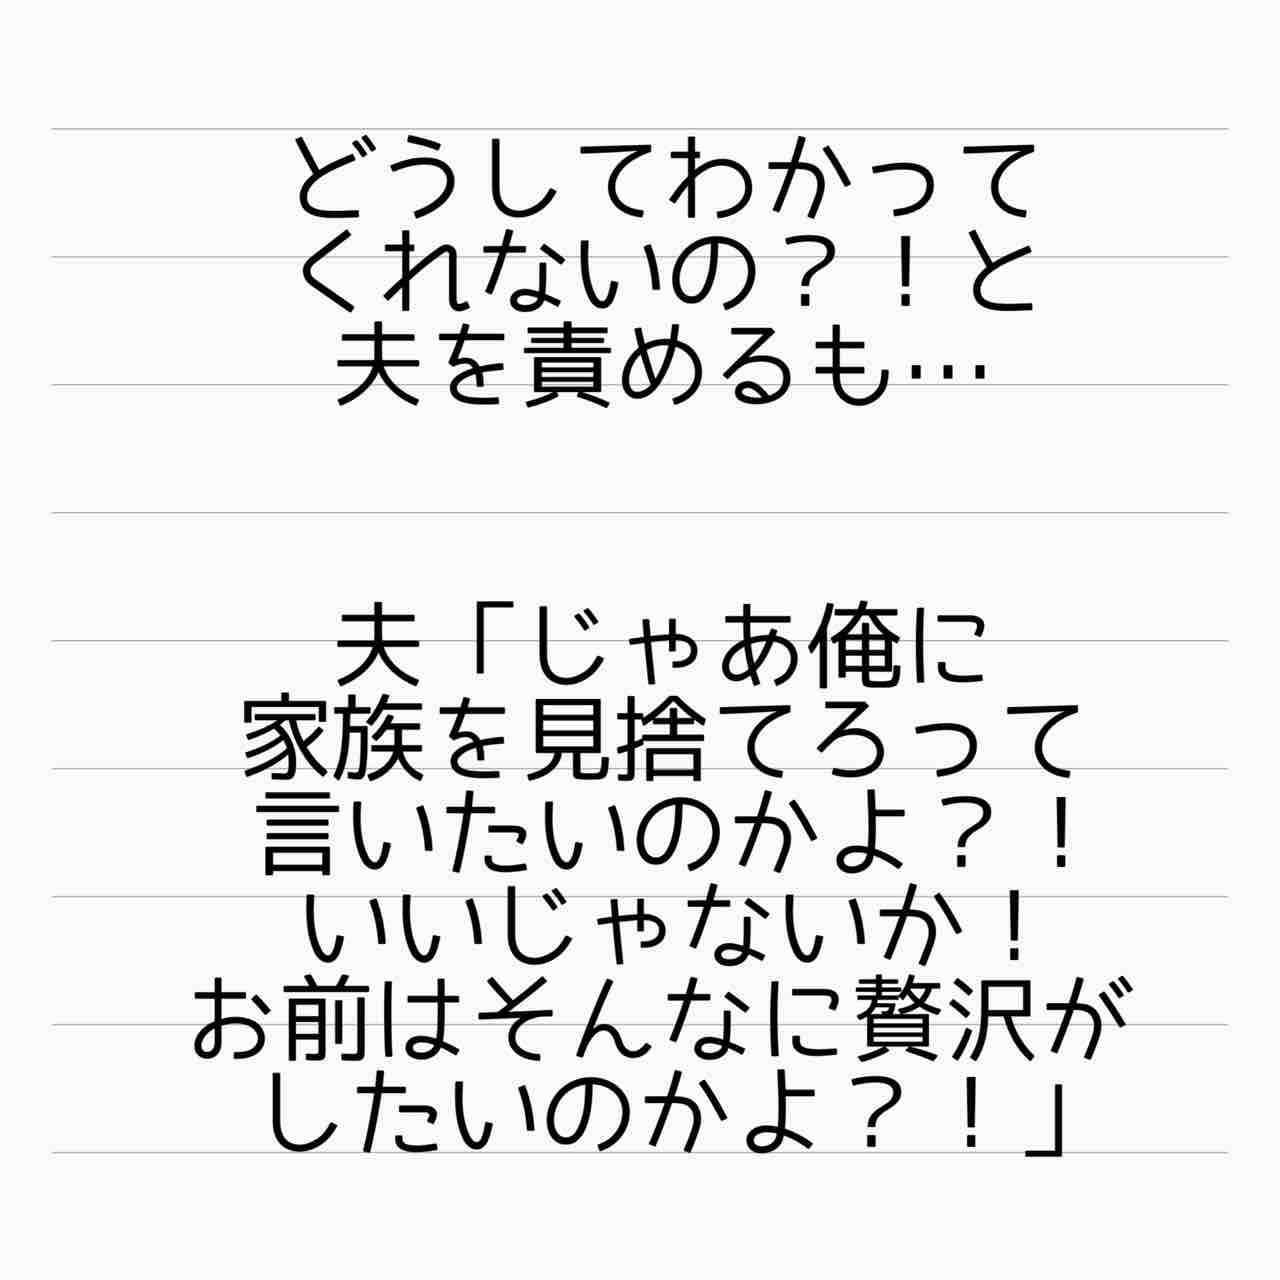 どうしてわかって
くれないの？！と
夫を責めるも…
夫「じゃあ俺に
家族を見捨てろって
言いたいのかよ？！
いいじゃないか！
お前はそんなに贅沢が
したいのかよ？！」